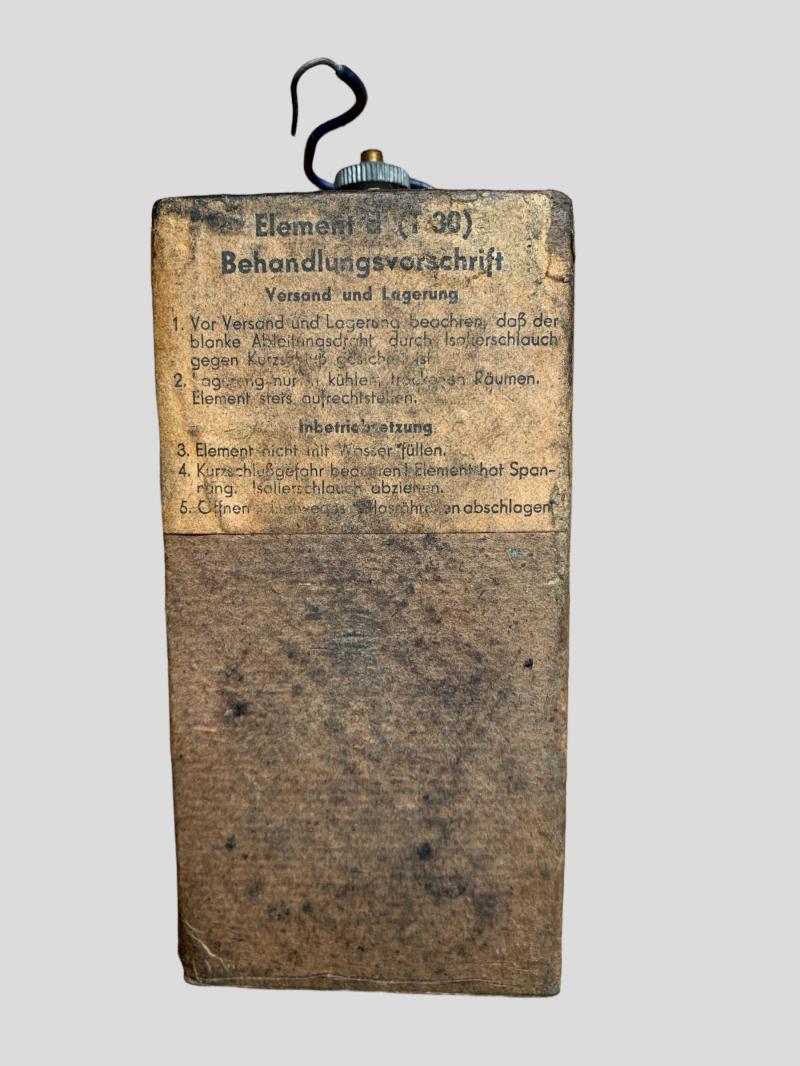 Element d (T 30)
Behandlungsvorschrift
Versand und Lagerung
1. Vor Versand und Lagerung beachten, daß der
blanke Ableitungsdraht durch Isolierschlauch
gegen Kurzschluß gesichert ist.
2. Lagerung nur in kühlen, trockenen Räumen.
Element stets aufrechtstellen.
Inbetriebsetzung
3. Element nicht mit Wasser füllen.
4. Kurzschlußgefahr beachten! Element hot Span-
nung. Isolierschlauch abziehen.
5. Öffnen abschlagen